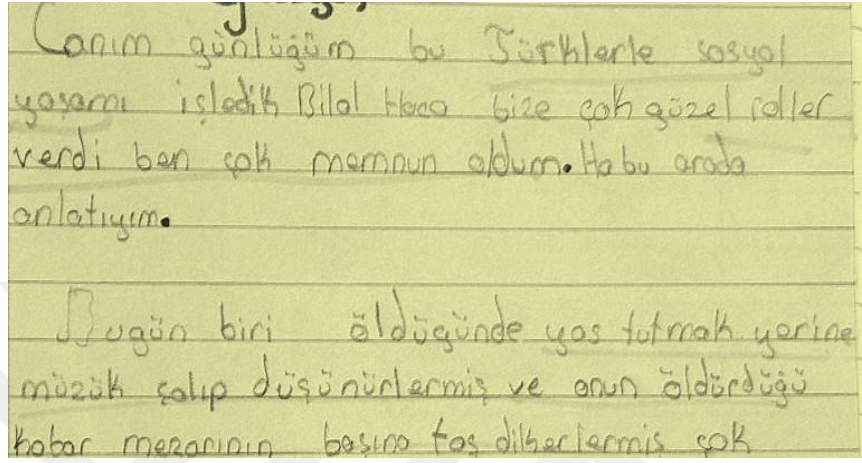 Canım günlüğüm bu Türklerle sosyal
yaşamı işledik Bilal Hoca bize çok güzel roller
verdi ben çok memnun oldum. Ha bu arada
anlatıyım.
Bugün biri öldüğünde yas tutmak yerine
müzük çalıp düşünürlermiş ve onun öldürdüğü
kabar mezarının başına taş dikerlermiş çok